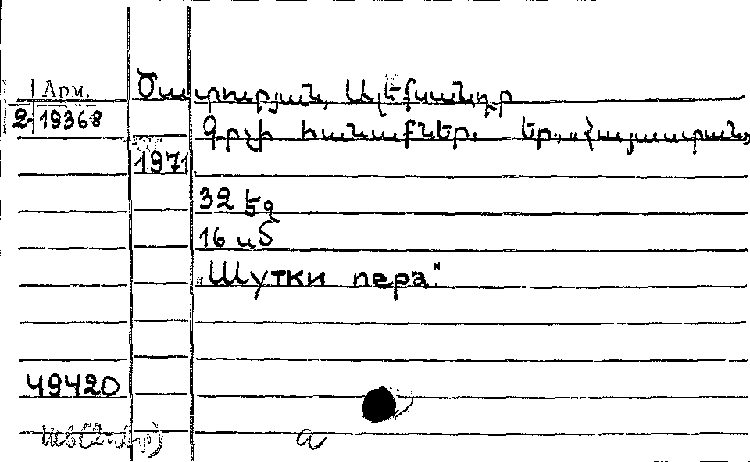 Арм. Ծատուրյան, Ալեքսանդր
2-19368 Գրչի հանաքներ. Եր., „Հայաստան„
1971
32 էջ
16 սմ
„Шутки пера."
49420
а